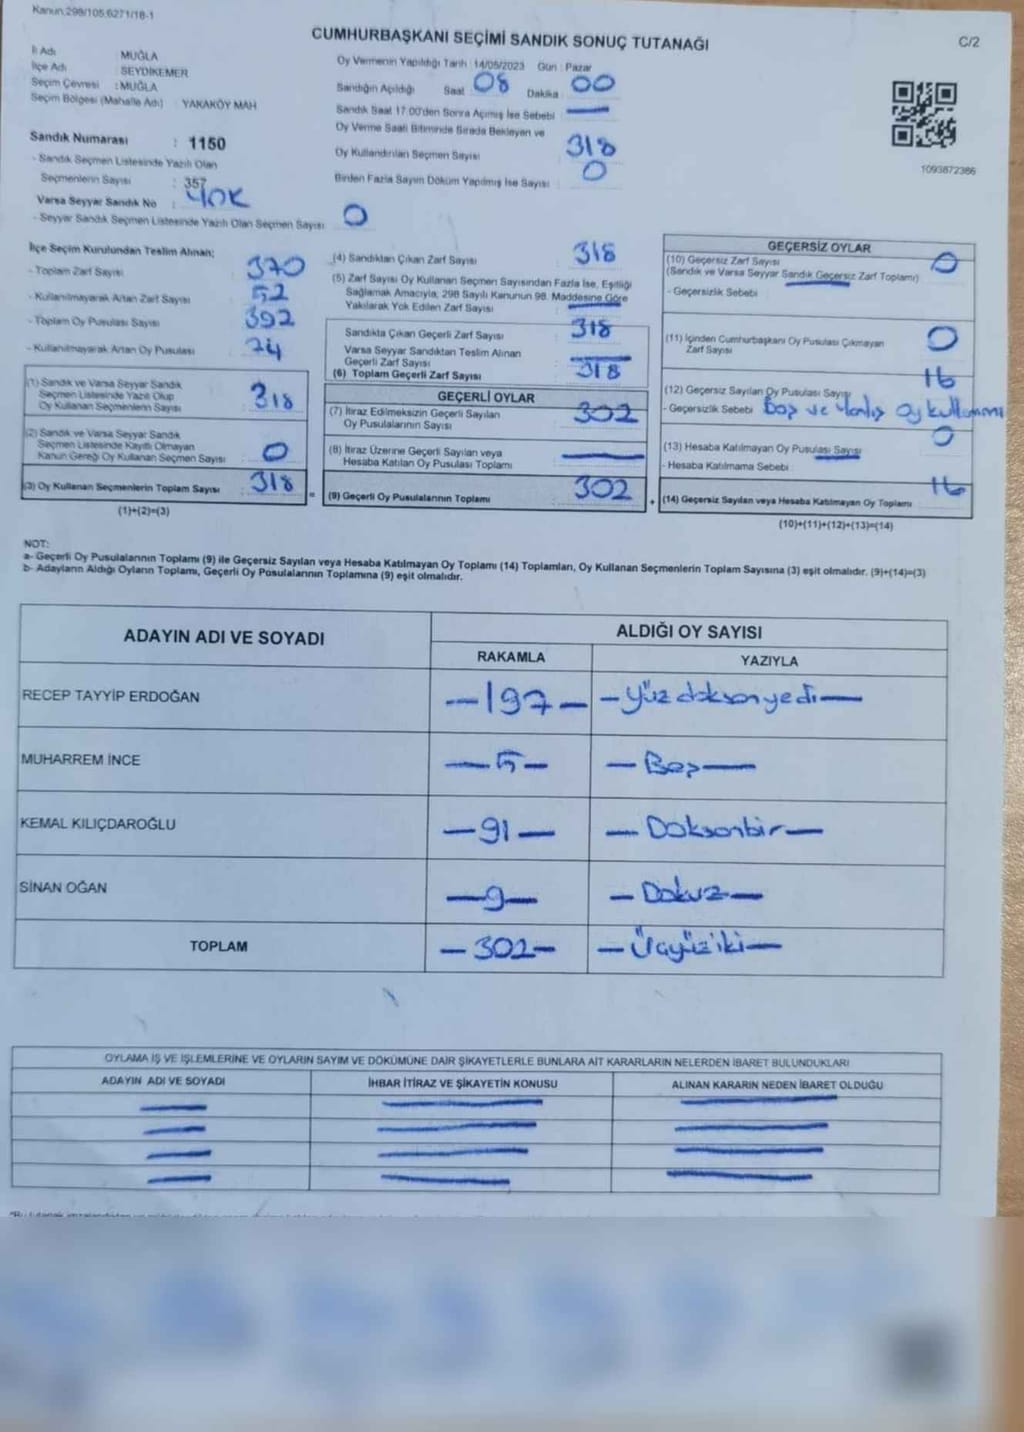 Kanun:298/105;6271/18-1
CUMHURBAŞKANI SEÇİMİ SANDIK SONUÇ TUTANAĞI
C/2
İl Adı : MUĞLA
İlçe Adı : SEYDİKEMER
Seçim Çevresi : MUĞLA
Seçim Bölgesi (Mahalle Adı) : YAKAKÖY MAH
Sandık Numarası : 1150
- Sandık Seçmen Listesinde Yazılı Olan
Seçmenlerin Sayısı : 357
Varsa Seyyar Sandık No : YOK
- Seyyar Sandık Seçmen Listesinde Yazılı Olan Seçmen Sayısı : 0
Oy Vermenin Yapıldığı Tarih : 14/05/2023 Gün : Pazar
Sandığın Açıldığı Saat 08 Dakika 00
Sandık Saat 17:00'den Sonra Açılmış İse Sebebi
Oy Verme Saati Bitiminde Sırada Bekleyen ve
Oy Kullandırılan Seçmen Sayısı 318
Birden Fazla Sayım Döküm Yapılmış İse Sayısı 0
1093872386
İlçe Seçim Kurulundan Teslim Alınan;
- Toplam Zarf Sayısı 370
- Kullanılmayarak Artan Zarf Sayısı 52
- Toplam Oy Pusulası Sayısı 392
- Kullanılmayarak Artan Oy Pusulası 74
(1) Sandık ve Varsa Seyyar Sandık
Seçmen Listesinde Yazılı Olup
Oy Kullanan Seçmenlerin Sayısı 318
(2) Sandık ve Varsa Seyyar Sandık
Seçmen Listesinde Kayıtlı Olmayan
Kanun Gereği Oy Kullanan Seçmen Sayısı 0
(3) Oy Kullanan Seçmenlerin Toplam Sayısı 318 =
(1)+(2)=(3)
(4) Sandıktan Çıkan Zarf Sayısı 318
(5) Zarf Sayısı Oy Kullanan Seçmen Sayısından Fazla İse, Eşitliği
Sağlamak Amacıyla, 298 Sayılı Kanunun 98. Maddesine Göre
Yakılarak Yok Edilen Zarf Sayısı
Sandıkta Çıkan Geçerli Zarf Sayısı 318
Varsa Seyyar Sandıktan Teslim Alınan
Geçerli Zarf Sayısı
(6) Toplam Geçerli Zarf Sayısı 318
GEÇERLİ OYLAR
(7) İtiraz Edilmeksizin Geçerli Sayılan
Oy Pusulalarının Sayısı 302
(8) İtiraz Üzerine Geçerli Sayılan veya
Hesaba Katılan Oy Pusulası Toplamı
(9) Geçerli Oy Pusulalarının Toplamı 302 +
GEÇERSİZ OYLAR
(10) Geçersiz Zarf Sayısı 0
(Sandık ve Varsa Seyyar Sandık Geçersiz Zarf Toplamı)
- Geçersizlik Sebebi
(11) İçinden Cumhurbaşkanı Oy Pusulası Çıkmayan
Zarf Sayısı 0
(12) Geçersiz Sayılan Oy Pusulası Sayısı 16
- Geçersizlik Sebebi Boş ve Yanlış oy kullanımı
(13) Hesaba Katılmayan Oy Pusulası Sayısı 0
- Hesaba Katılmama Sebebi
(14) Geçersiz Sayılan veya Hesaba Katılmayan Oy Toplamı 16
(10)+(11)+(12)+(13)=(14)
NOT:
a- Geçerli Oy Pusulalarının Toplamı (9) ile Geçersiz Sayılan veya Hesaba Katılmayan Oy Toplamı (14) Toplamları, Oy Kullanan Seçmenlerin Toplam Sayısına (3) eşit olmalıdır. (9)+(14)=(3)
b- Adayların Aldığı Oyların Toplamı, Geçerli Oy Pusulalarının Toplamına (9) eşit olmalıdır.
ADAYIN ADI VE SOYADI
ALDIĞI OY SAYISI
RAKAMLA YAZIYLA
RECEP TAYYİP ERDOĞAN -197- -Yüz doksan yedi-
MUHARREM İNCE -5- -Beş-
KEMAL KILIÇDAROĞLU -91- -Doksanbir-
SİNAN OĞAN -9- -Dokuz-
TOPLAM -302- -Üçyüziki-
OYLAMA İŞ VE İŞLEMLERİNE VE OYLARIN SAYIM VE DÖKÜMÜNE DAİR ŞİKAYETLERLE BUNLARA AİT KARARLARIN NELERDEN İBARET BULUNDUKLARI
ADAYIN ADI VE SOYADI İHBAR İTİRAZ VE ŞİKAYETİN KONUSU ALINAN KARARIN NEDEN İBARET OLDUĞU